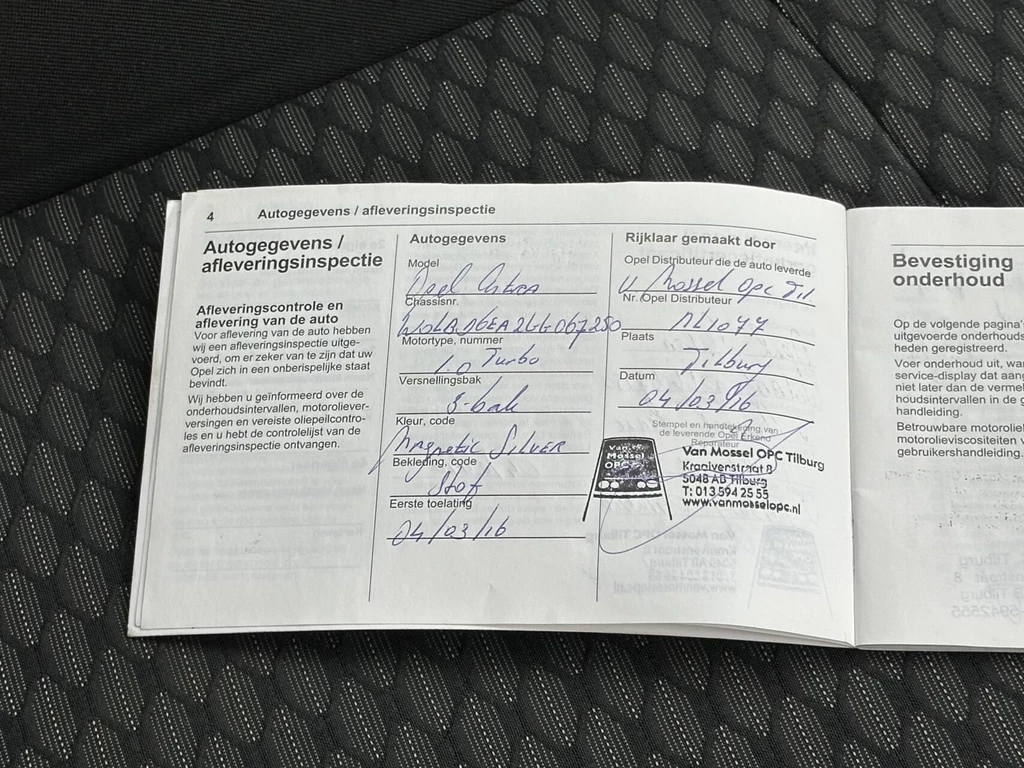 4 Autogegevens / afleveringsinspectie
Autogegevens /
afleveringsinspectie
Afleveringscontrole en
aflevering van de auto
Voor aflevering van de auto hebben
wij een afleveringsinspectie uitge-
voerd, om er zeker van te zijn dat uw
Opel zich in een onberispelijke staat
bevindt.
Wij hebben u geïnformeerd over de
onderhoudsintervallen, motoroliever-
versingen en vereiste oliepeilcontro-
les en u hebt de controlelijst van de
afleveringsinspectie ontvangen.
Autogegevens
Model
Opel Astra
Chassisnr.
Motortype, nummer
1.0 Turbo
Versnellingsbak
5-bak
Kleur, code
Magnetic Silver
Bekleding, code
Stof
Eerste toelating
04/03/16
Rijklaar gemaakt door
Opel Distributeur die de auto leverde
V Mossel OPC Til
Nr. Opel Distributeur
NL1077
Plaats
Tilburg
Datum
04/03/16
Stempel en handtekening van
de leverende Opel Erkend
Reparateur
Van Mossel OPC
Van Mossel OPC Tilburg
Kraaivenstraat 8
5048 AB Tilburg
T: 013 594 25 55
www.vanmosselopc.nl
Bevestiging
onderhoud
Op de volgende pagina'
uitgevoerde onderhouds
heden geregistreerd.
Voer onderhoud uit, wa
service-display dat aan
niet later dan de vermel
houdsintervallen in de g
handleiding.
Betrouwbare motoroliel
motorolieviscositeiten v
gebruikershandleiding.